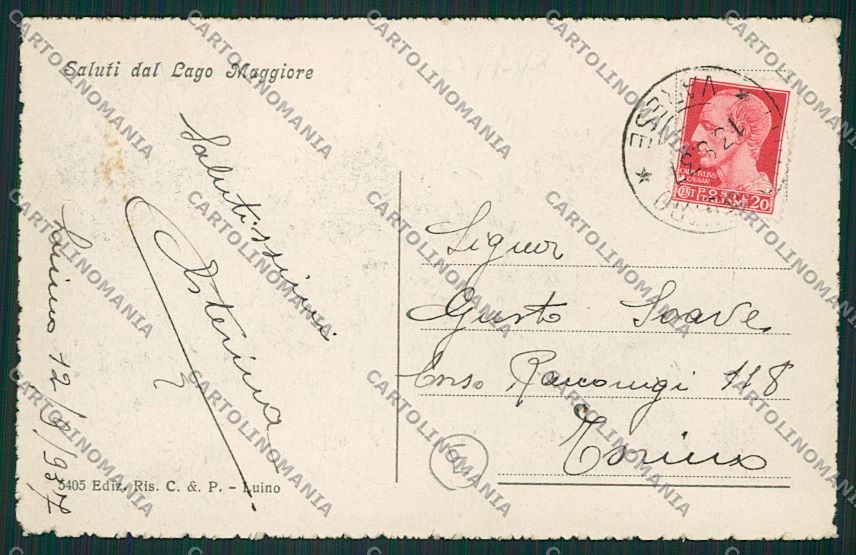 Saluti dal Lago Maggiore
Salutissimi
Luino 12/9/937
5405 Ediz. Ris. C. & P. - Luino
VARESE
POSTE
ITALIANE
CENT 20
Signor
Gusto Soave
Corso Racconigi 118
Torino
CARTOLINOMANIA